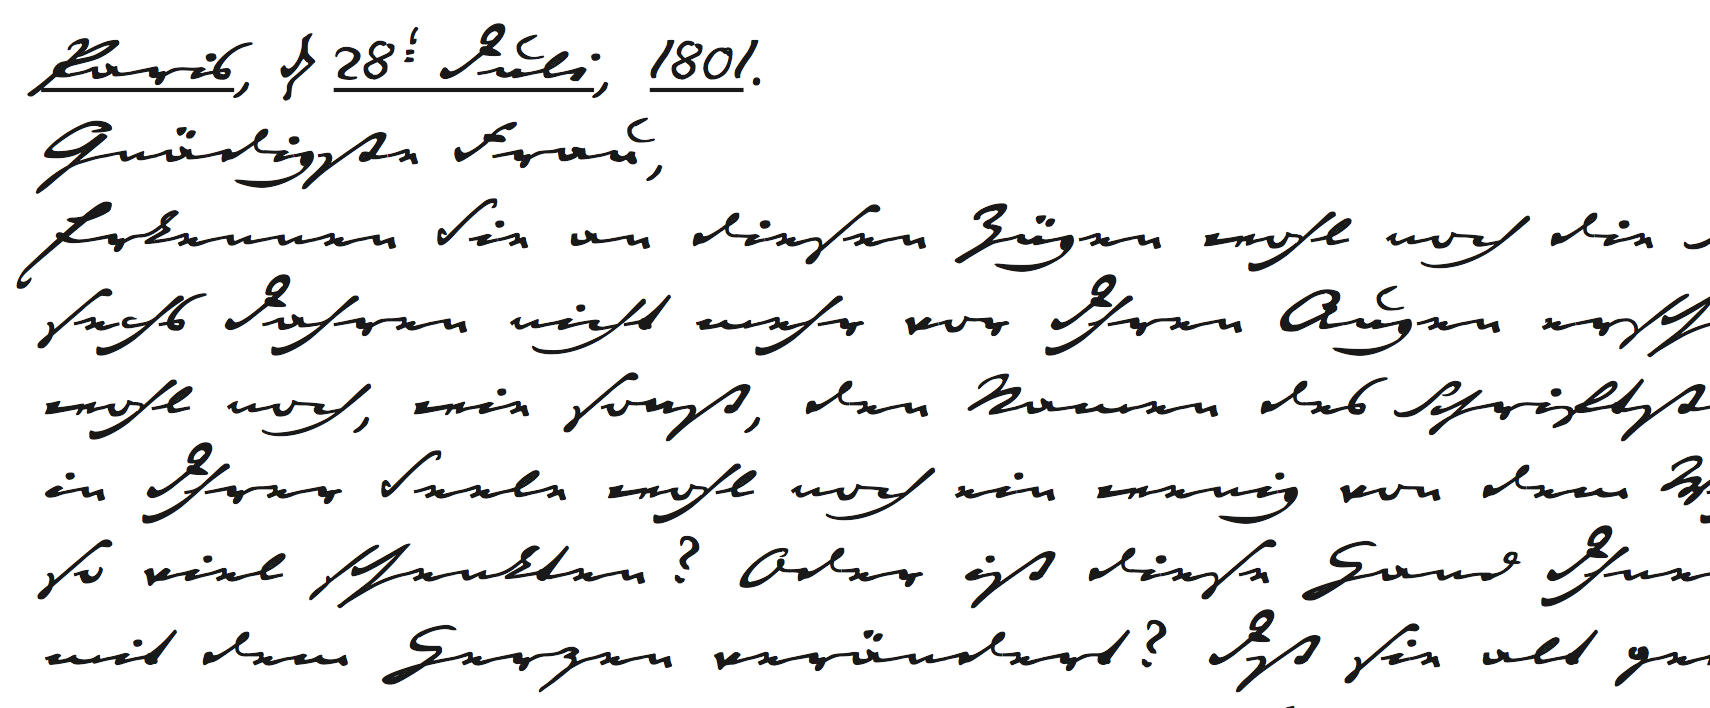 Paris, d 28t Juli, 1801.
Gnädigste Frau,
Erkennen Sie an diesen Zügen wohl noch die
sechs Jahren nicht mehr vor Ihren Augen ersch
wohl noch, wie sonst, den Namen des Schriftst
in Ihrer Seele wohl noch ein wenig von dem W
so viel schenkten? Oder ist diese Hand Ihne
mit dem Herzen verändert? Ist sie alt ge